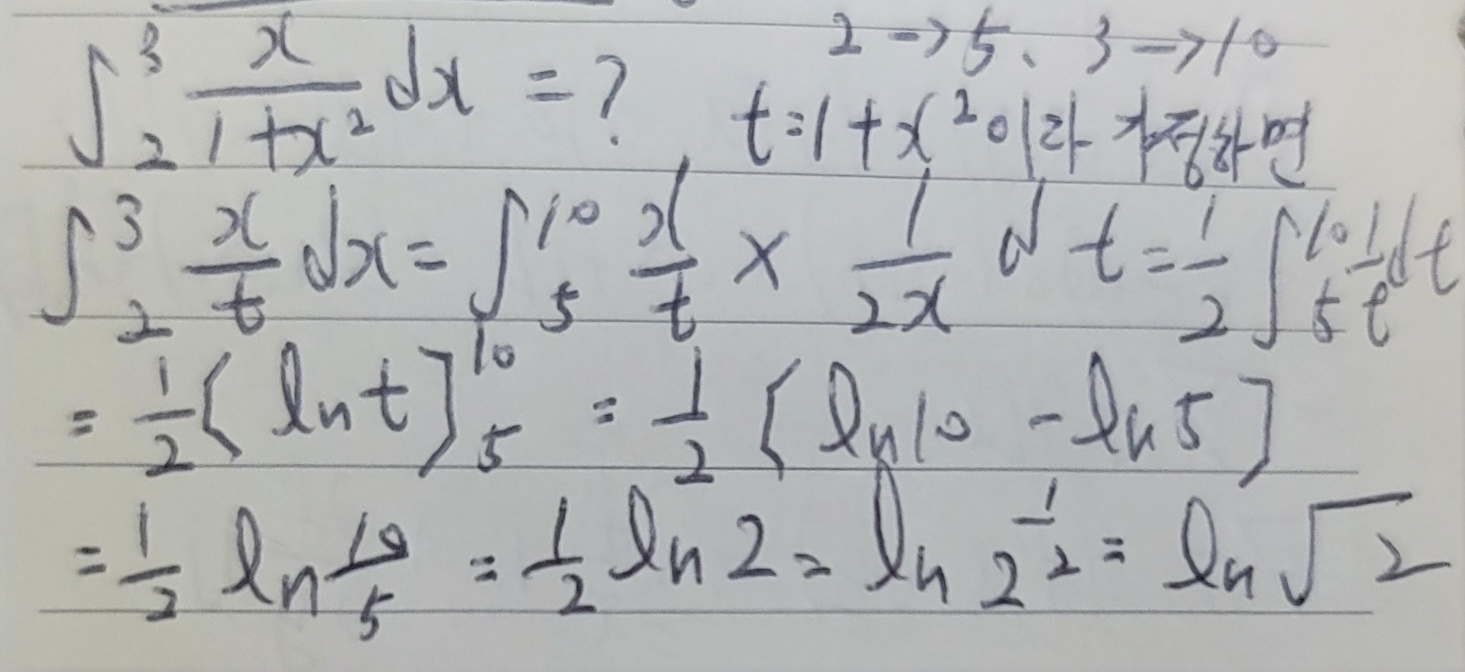 2 → 5, 3 → 10
∫₂³ x/(1+x²) dx = ? t=1+x²이라 가정하면
∫₂³ x/t dx = ∫₅¹⁰ x/t × 1/(2x) dt = 1/2 ∫₅¹⁰ 1/t dt
= 1/2 [ln t]₅¹⁰ = 1/2 [ln 10 - ln 5]
= 1/2 ln 10/5 = 1/2 ln 2 = ln 2^(1/2) = ln √2